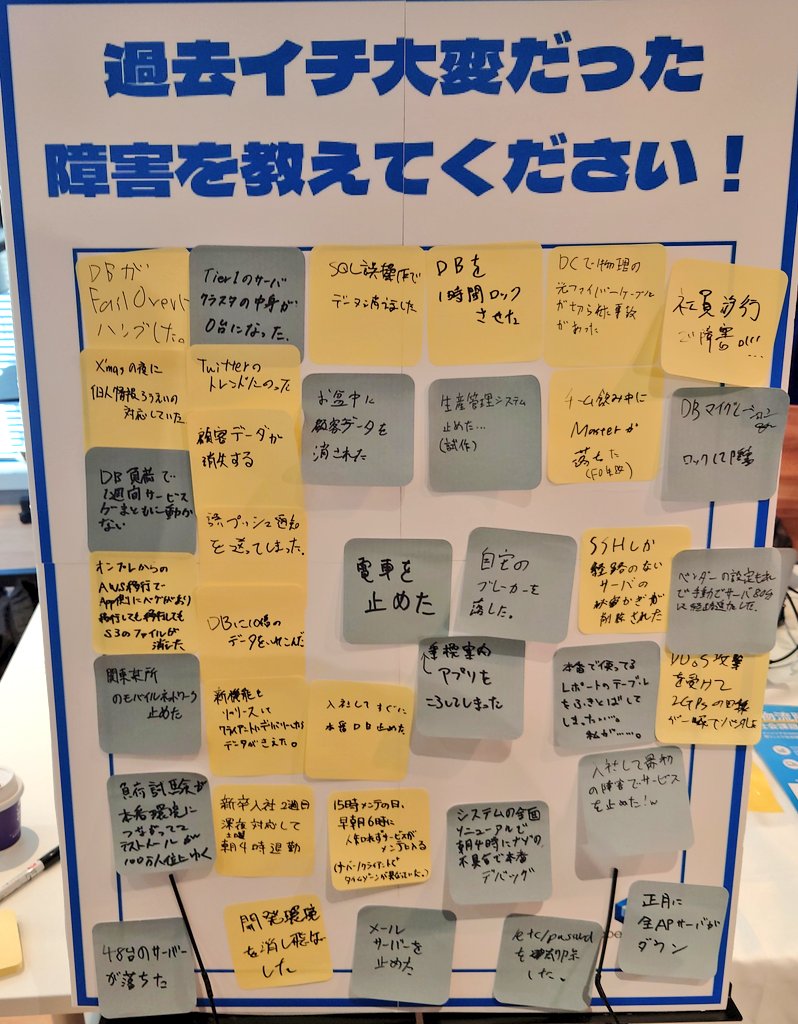 過去イチ大変だった
障害を教えてください！
DBが
FailOverに
ハングした。
Tier1のサーバ
クラスタの中身が
0台になった。
SQL誤操作で
データ消した
DBを
1時間ロック
させた
DCで物理の
光ファイバーケーブル
が切られた事故
があった
社員旅行
で障害
Xmasの夜に
個人情報ろうえいの
対応していた。
Twitterの
トレンドにのった
顧客データが
消失する
お盆中に
顧客データを
消された
生産管理システム
止めた…
(試作)
チーム飲み中に
Masterが
落ちた
DBマイグレーション
ロックして障害
DB負荷で
1週間サービス
がまともに動か
ない
誤プッシュ通知
を送ってしまった。
オンプレからの
AWS移行で
App側にバグがあり
移行しても移行しても
S3のファイルが
消えた
DBに10倍の
データをいれこんだ
電車を
止めた
自宅の
ブレーカーを
落した。
SSHしか
経路のない
サーバの
秘密かぎが
削除された
ベンダーの設定もれ
で手動でサーバ80台
関東支所
のモバイルネットワーク
止めた
新機能を
リリースして
データがきえた。
入社してすぐに
本番DB止めた
乗換案内
アプリを
ころしてしまった
本番で使ってる
レポートのテーブル
をふきとばして
しまった…。
私が……。
DDoS攻撃
を受けて
2GBpsの回線
が一瞬でパンクした
負荷試験が
本番環境に
つながってて
テストメールが
100万人位にゆく
新卒入社2週目
深夜対応して
土曜
朝4時退勤
15時メンテの日、
早朝6時に
人知れずサービスが
メンテに入る
(サーバ/クライアントで
タイムゾーンが異なっていた。)
システムの全面
リニューアルで
朝4時にナゾの
不具合で本番
デバッグ
入社して最初
の障害でサービス
を止めた！w
48台のサーバー
が落ちた
開発環境
を消し飛ば
した
メール
サーバーを
止めた
/etc/passwd
を削除
した。
正月に
全APサーバが
ダウン